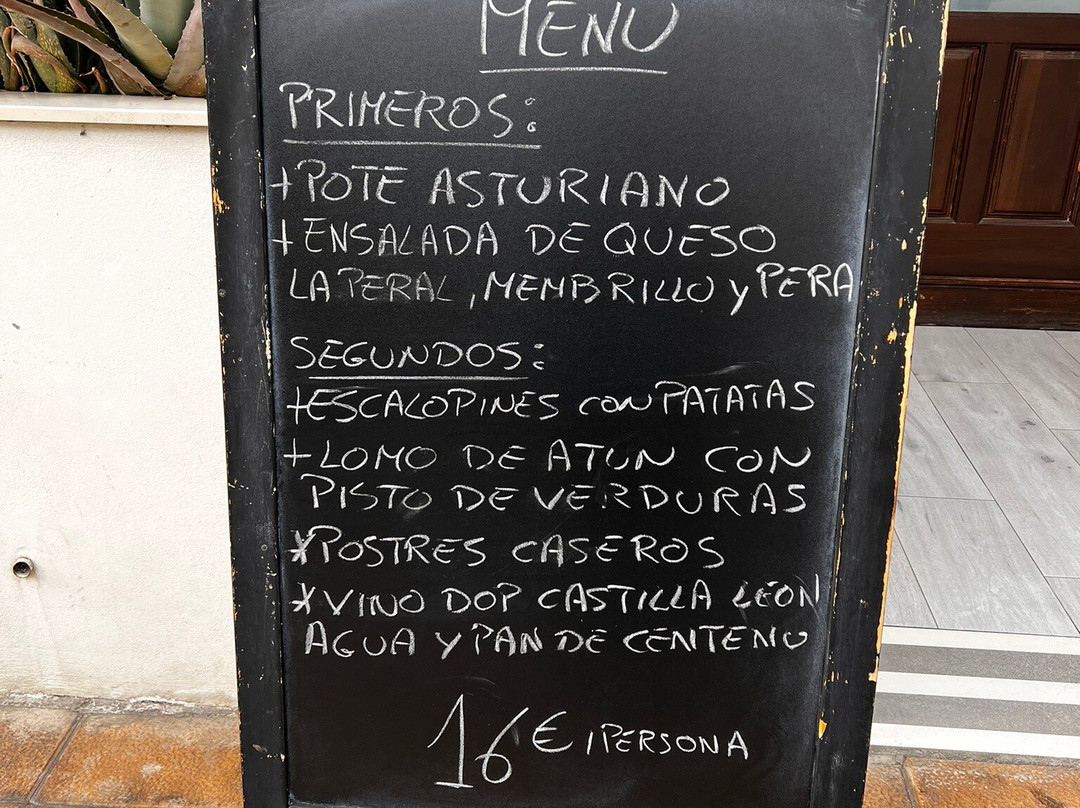 MENU
PRIMEROS:
+POTE ASTURIANO
+ENSALADA DE QUESO
LA PERAL, MEMBRILLO y PERA
SEGUNDOS:
+ESCALOPINES CON PATATAS
+LOMO DE ATUN CON
PISTO DE VERDURAS
*POSTRES CASEROS
*VINO DOP CASTILLA LEON
AGUA Y PAN DE CENTENO
16€ /PERSONA